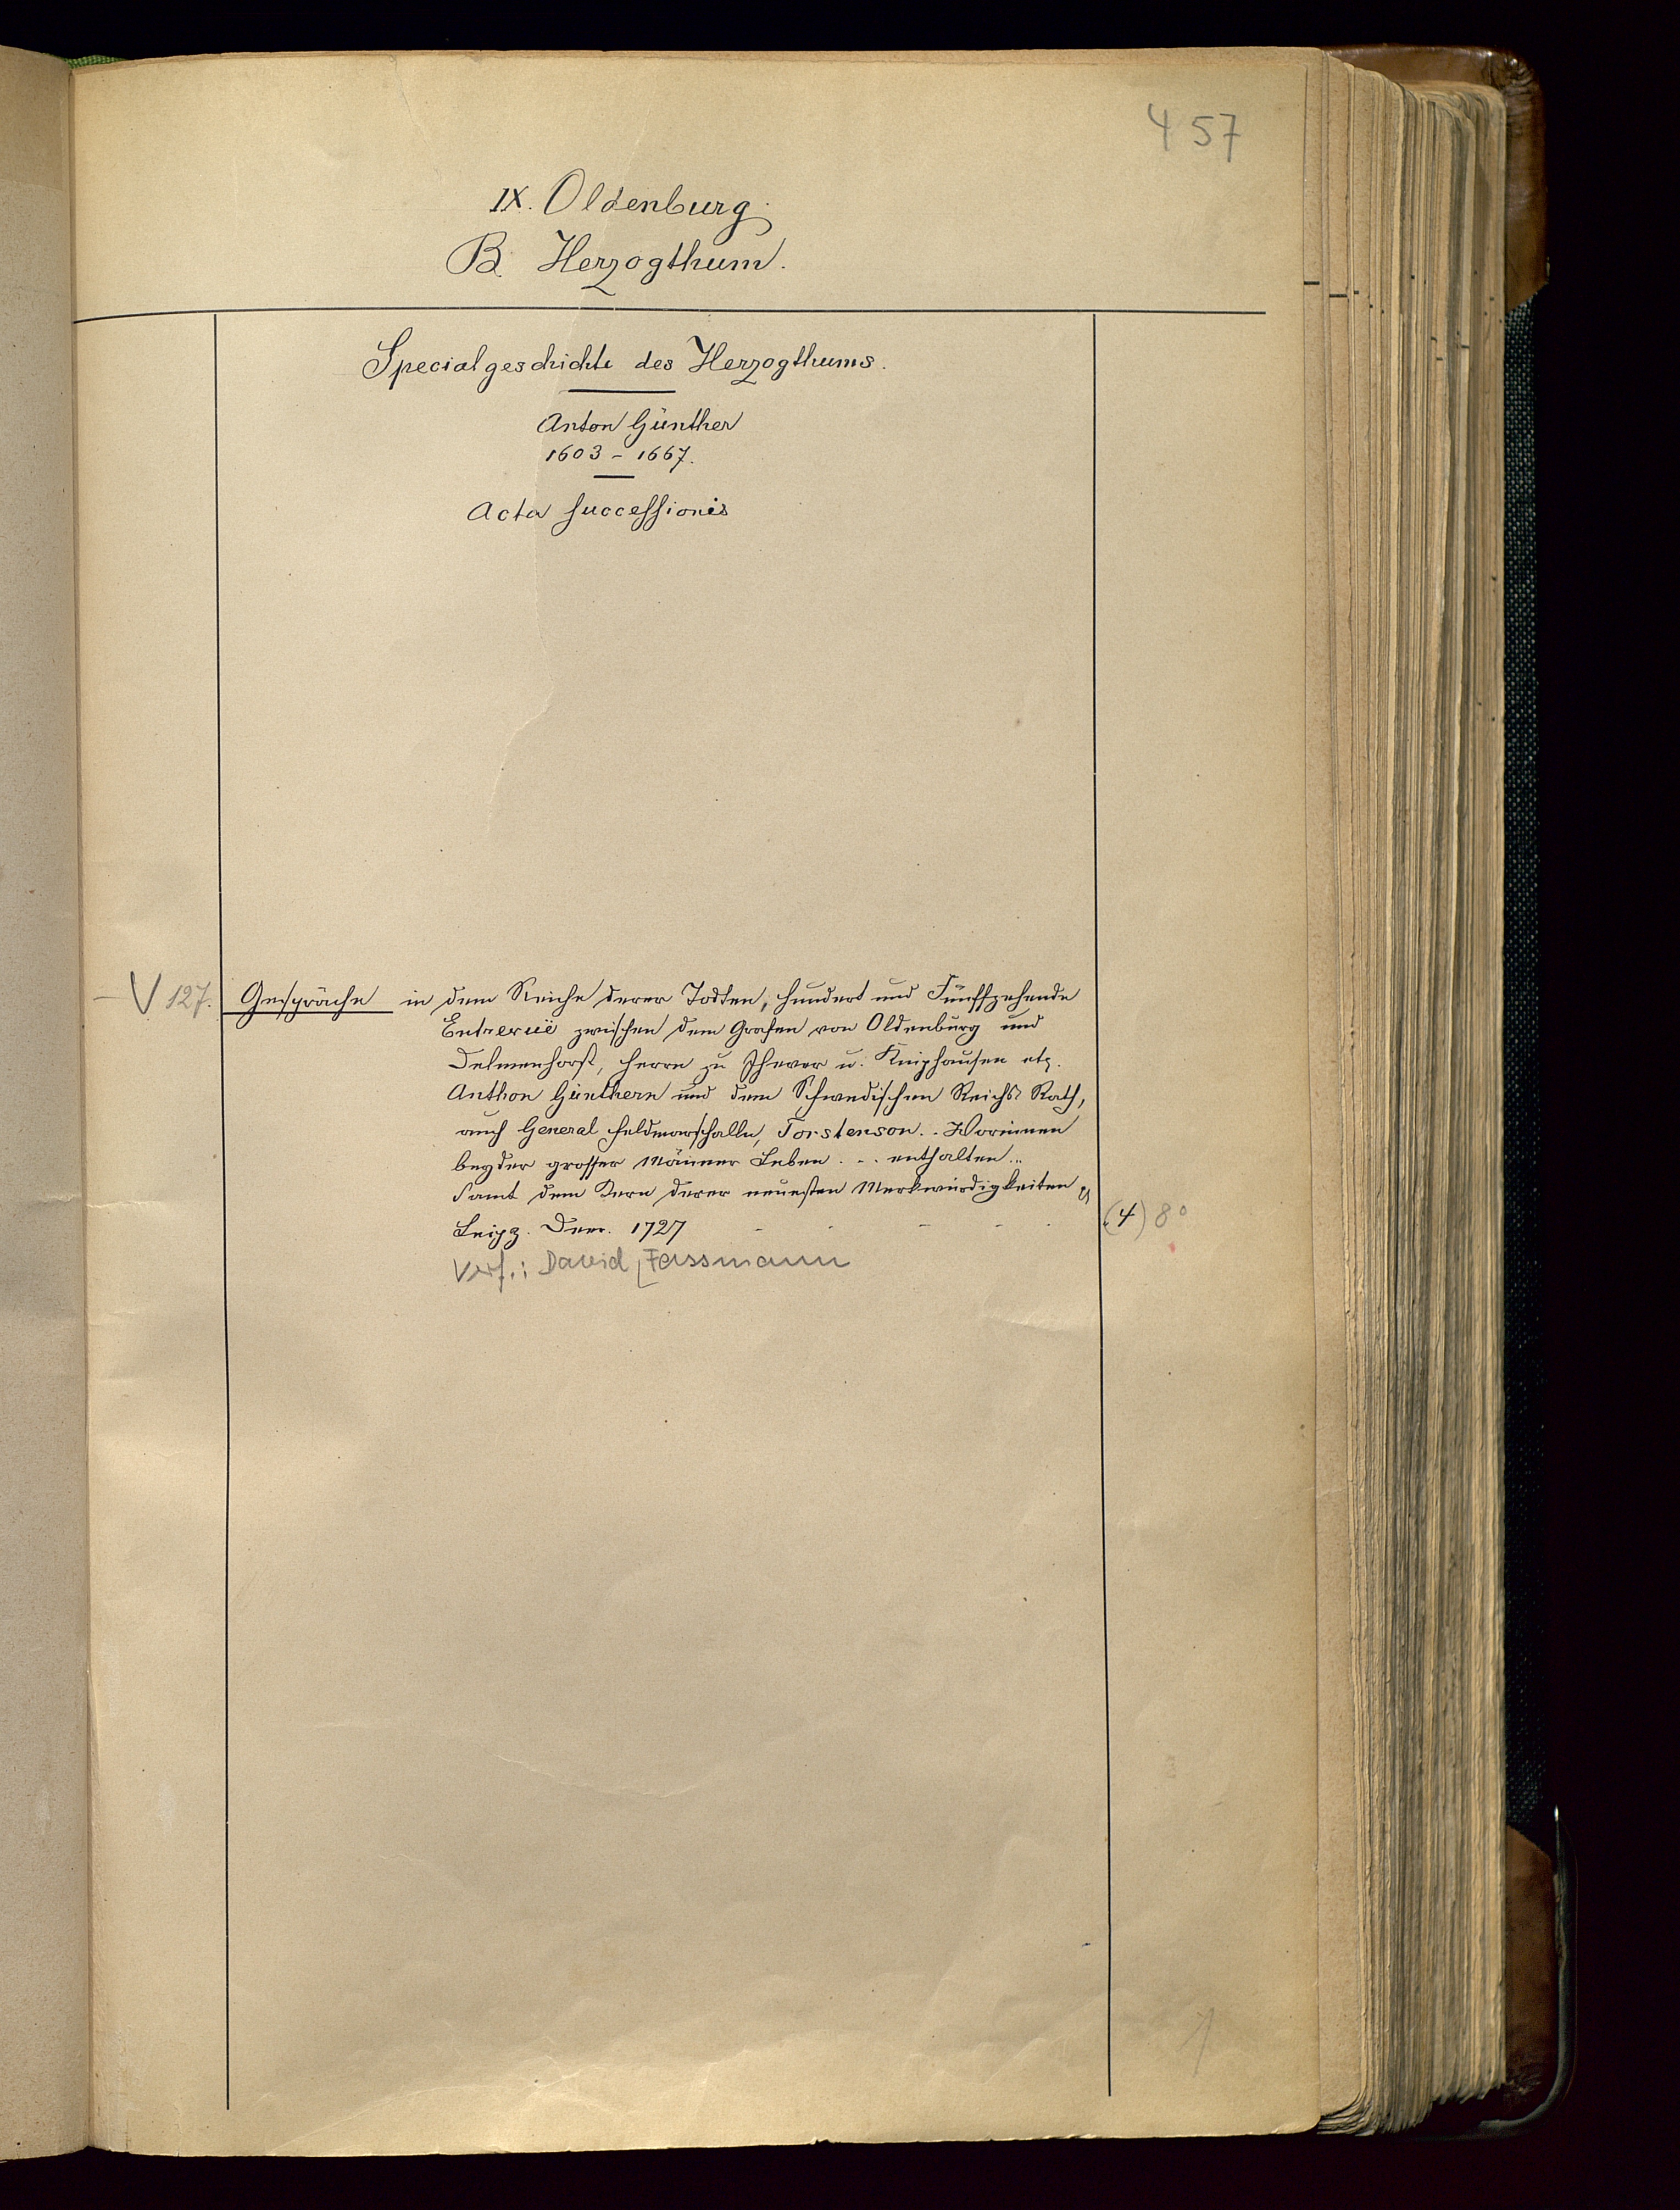 457
IX. Oldenburg.
B. Herzogthum.
Specialgeschichte des Herzogthums.
Anton Günther
1603 - 1667.
Acta successionis
V 127. Gespräche in dem Reiche derer Todten, hundert und Fünffzehende
Entrevuë zwischen dem Grafen von Oldenburg und
Delmenhorst, Herrn zu Jhever u. Kniphausen etz.
Anthon Günthern und dem Schwedischen Reichs Rath,
auch General Feldmarschalln, Torstenson.. Worinnen
beyder grosser Männer Leben ... enthalten...
Samt dem Kern derer neuesten Merkwürdigkeiten
Leipz. Deer. 1727 - - - - - (4) 8°
Verf.: David [Fassmann
1